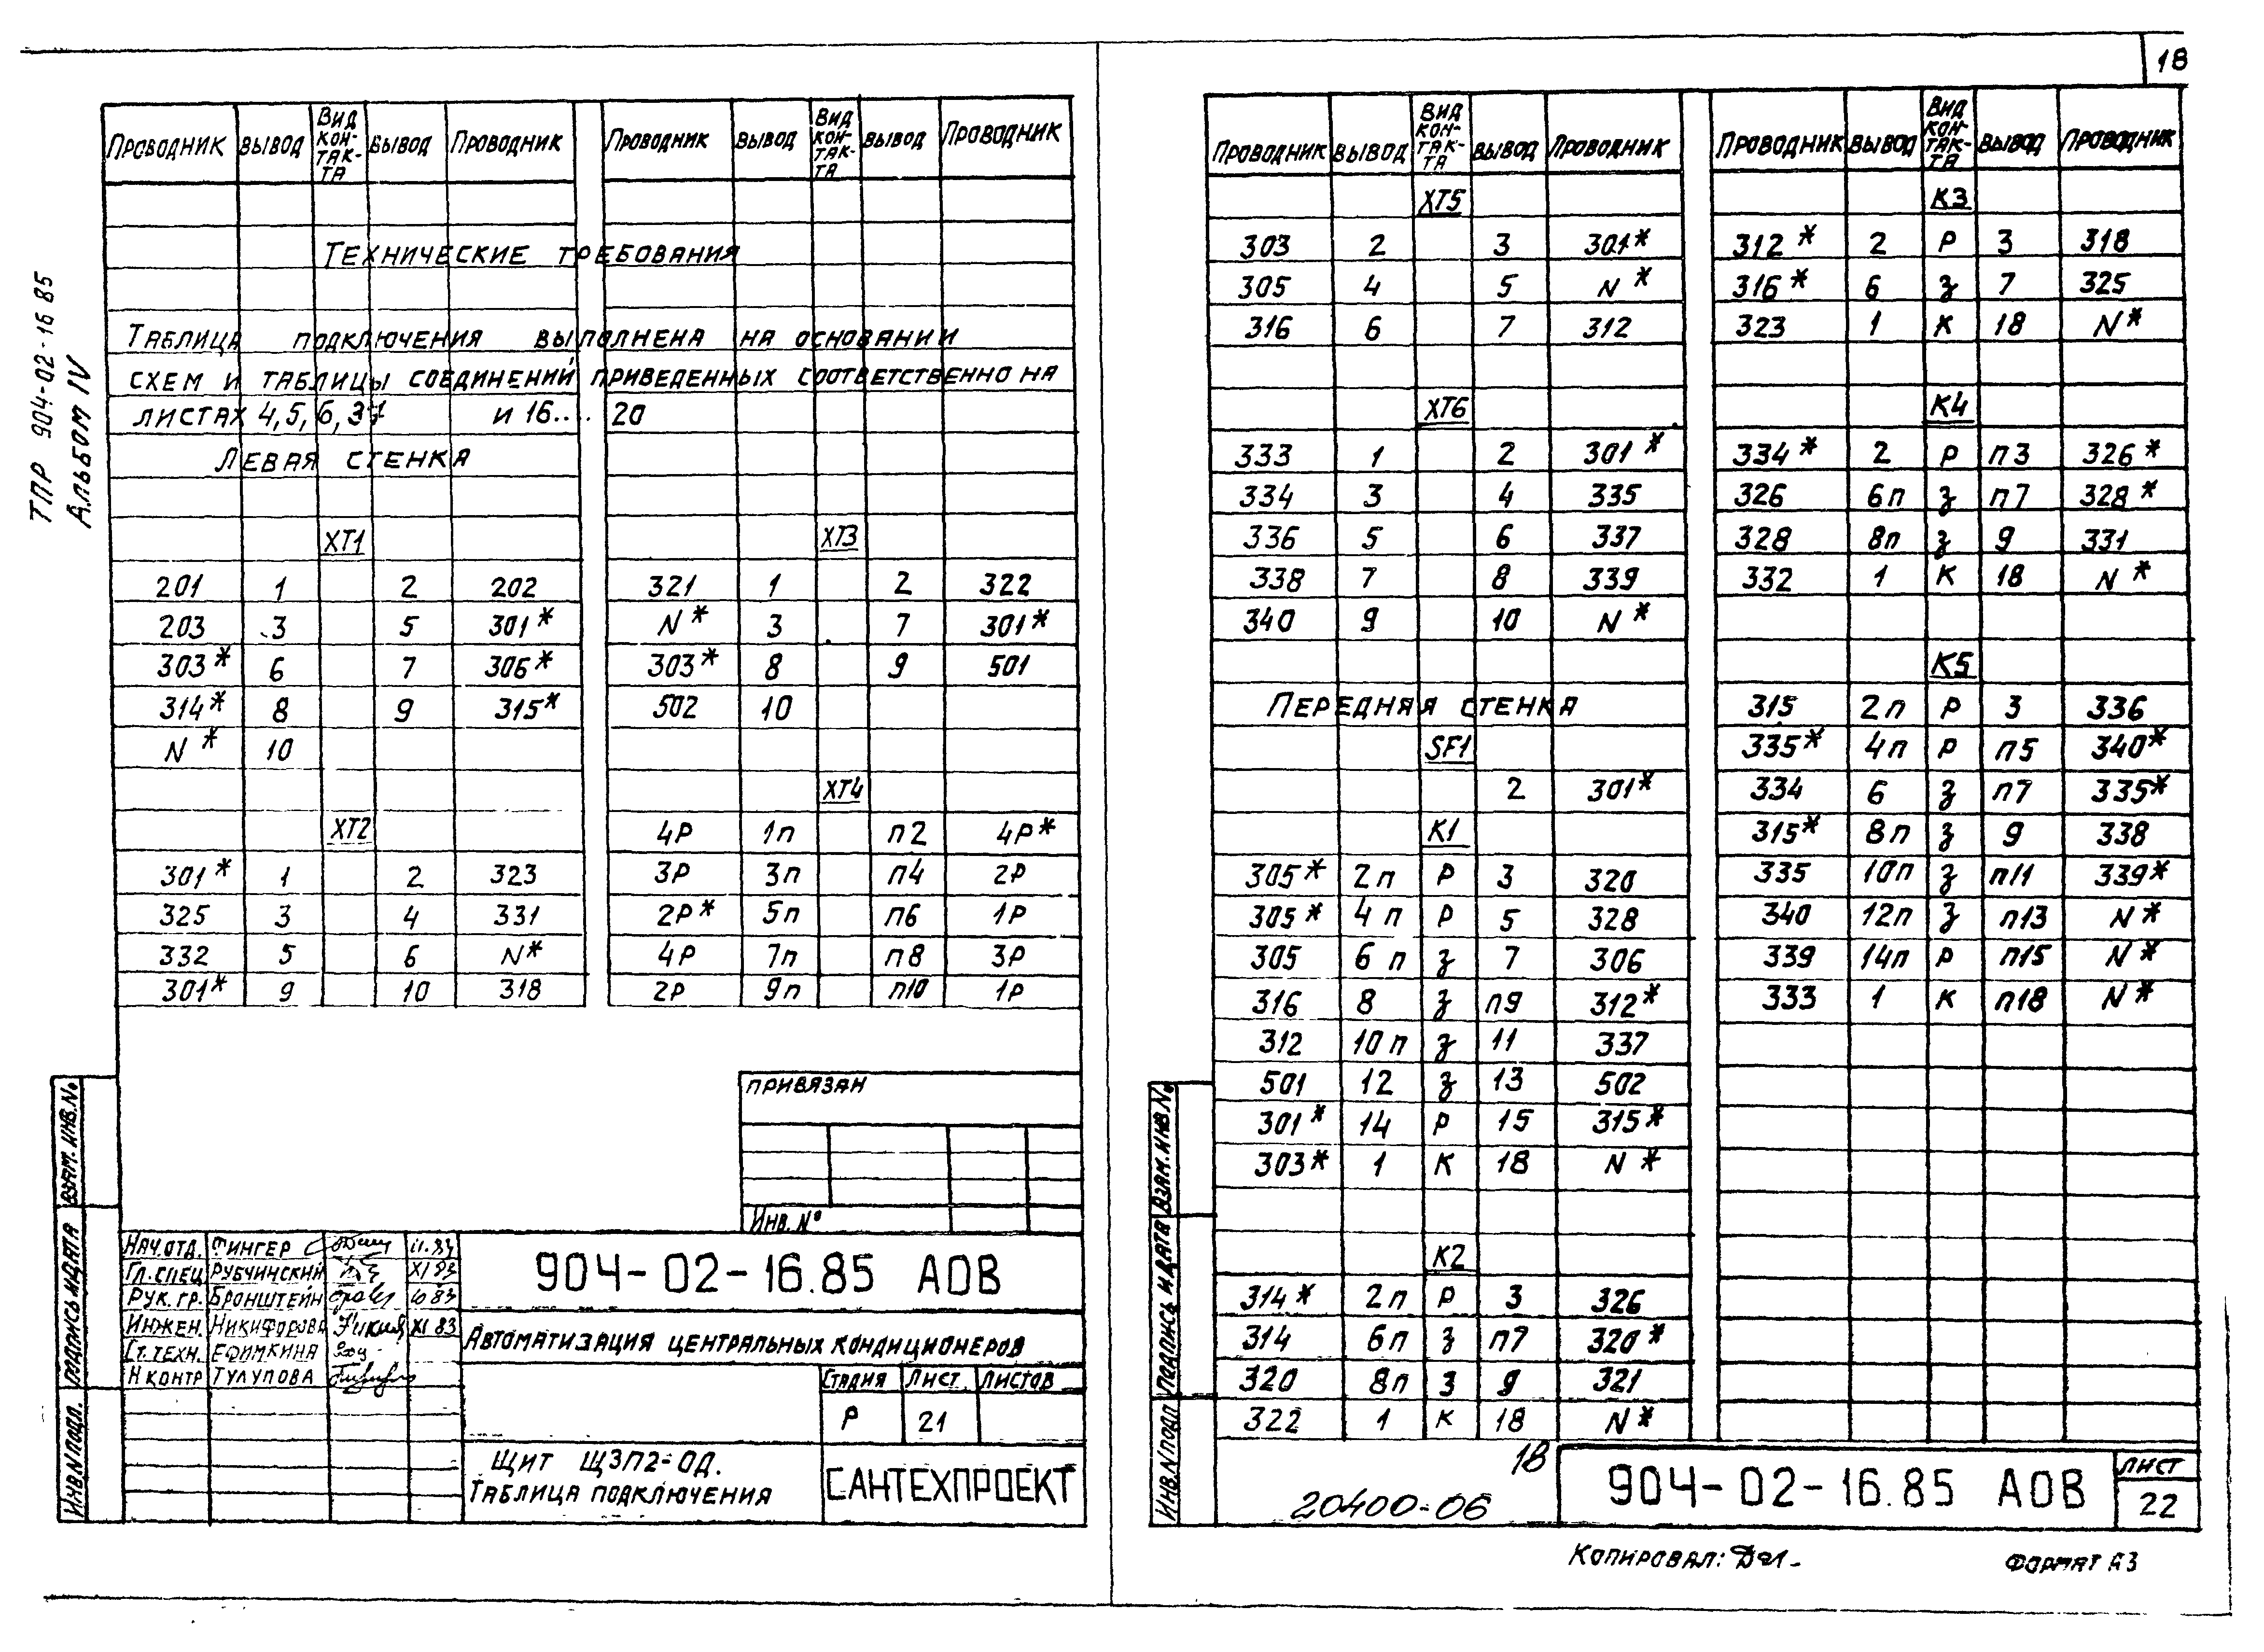 18
ТПР 904-02-16 85
Альбом IV
Проводник вывод Вид кон-так-та вывод Проводник Проводник вывод Вид кон-так-та вывод Проводник
Технические требования
Таблица подключения выполнена на основании
схем и таблицы соединений приведенных соответственно на
листах 4,5,6,37 и 16.... 20
Левая стенка
XT1 XT3
201 1 2 202 321 1 2 322
203 3 5 301* N* 3 7 301*
303* 6 7 306* 303* 8 9 501
314* 8 9 315* 502 10
N* 10
XT4
XT2 4Р 1п п2 4Р*
301* 1 2 323 3Р 3п п4 2Р
325 3 4 331 2Р* 5п п6 1Р
332 5 6 N* 4Р 7п п8 3Р
301* 9 10 318 2Р 9п п10 1Р
Привязан
Инв. №
Нач.отд. Фингер 11.83
Гл.спец Рубчинский XI 83
Рук. гр. Бронштейн 10 83
Инжен. Никифорова XI 83
Ст.техн. Ефимкина
Н контр Тулупова
904-02-16.85 АОВ
Автоматизация центральных кондиционеров
Стадия Лист Листов
Р 21
Щит ЩЗП2-ОД.
Таблица подключения
САНТЕХПРОЕКТ
Взам. инв. №
Подпись и дата
Инв. № подл.
Проводник вывод Вид кон-так-та вывод Проводник Проводник вывод Вид кон-так-та вывод Проводник
XT5 К3
303 2 3 301* 312* 2 Р 3 318
305 4 5 N* 316* 6 З 7 325
316 6 7 312 323 1 К 18 N*
XT6 К4
333 1 2 301* 334* 2 Р п3 326*
334 3 4 335 326 6п З п7 328*
336 5 6 337 328 8п З 9 331
338 7 8 339 332 1 К 18 N*
340 9 10 N*
К5
Передняя стенка 315 2п Р 3 336
SF1 335* 4п Р п5 340*
2 301* 334 6 З п7 335*
К1 315* 8п З 9 338
305* 2п Р 3 320 335 10п З п11 339*
305* 4п Р 5 328 340 12п З п13 N*
305 6п З 7 306 339 14п Р п15 N*
316 8 З п9 312* 333 1 К п18 N*
312 10п З 11 337
501 12 З 13 502
301* 14 Р 15 315*
303* 1 К 18 N*
К2
314* 2п Р 3 326
314 6п З п7 320*
320 8п З 9 321
322 1 К 18 N*
18
20400-06
904-02-16.85 АОВ
Лист
22
Взам. инв №
Подпись и дата
Инв. № подл
Копировал:
Формат А3